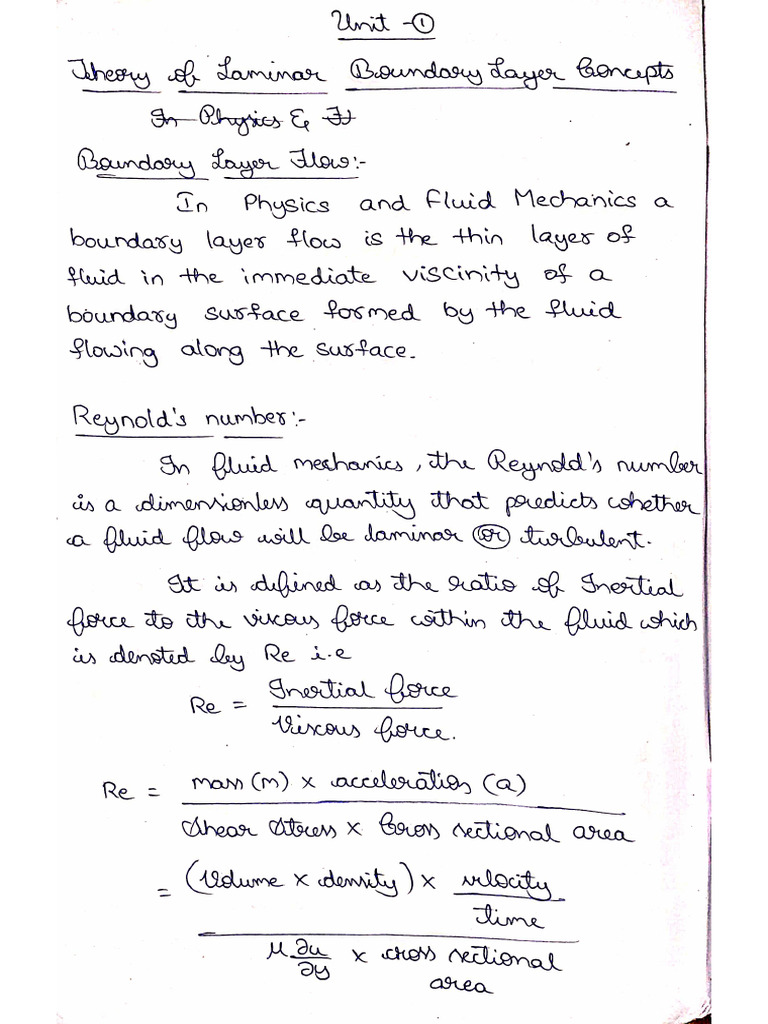 Unit - ①
Theory of Laminar Boundary Layer Concepts
In Physics &
Boundary Layer Flow:-
In Physics and Fluid Mechanics a
boundary layer flow is the thin layer of
fluid in the immediate viscinity of a
boundary surface formed by the fluid
flowing along the surface.
Reynold's number:-
In fluid mechanics, the Reynold's number
is a dimensionless quantity that predicts whether
a fluid flow will be laminar (or) turbulent.
It is defined as the ratio of Inertial
force to the viscous force within the fluid which
is denoted by Re i.e
Re = Inertial force
Viscous force.
Re = mass (m) × acceleration (a)
Shear Stress × Cross sectional area
= (Volume × density) × velocity
time
μ ∂u × cross sectional
∂y area